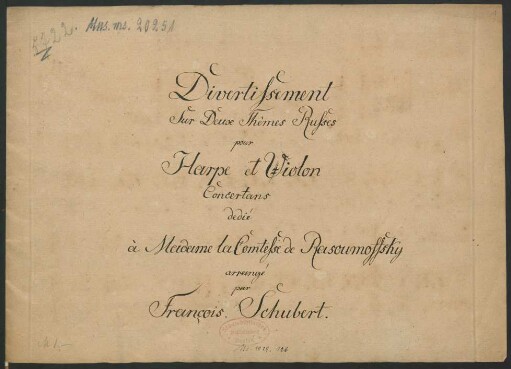 Mus. ms. 20251
Divertissement
Sur Deux Thêmes Russes
pour
Harpe et Violon
Concertans
dedié
à Madame la Comtesse de Rasoumoffsky
arrangé
par
François Schubert.